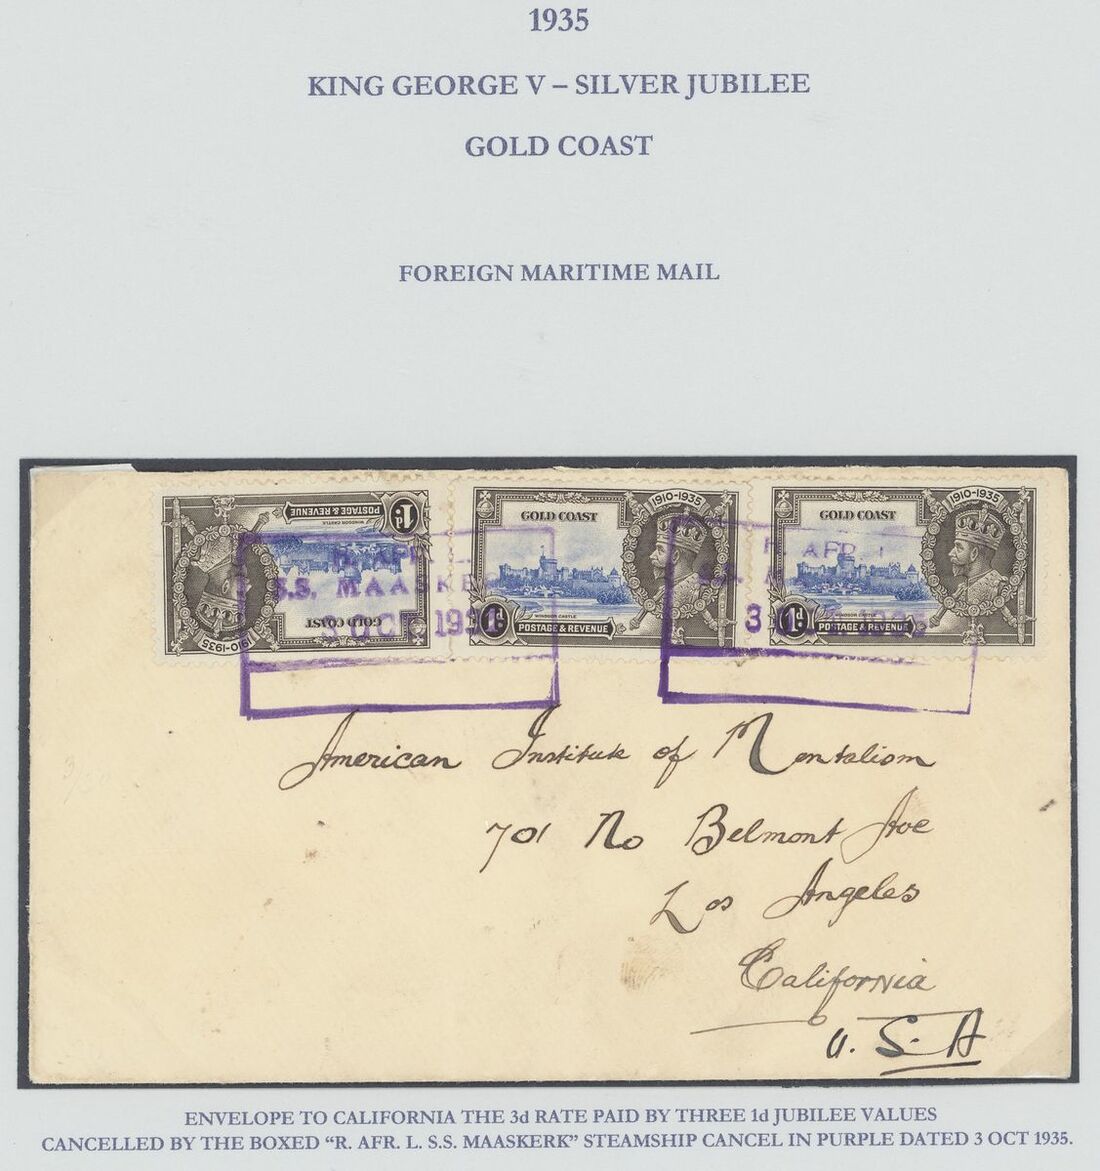 1935
KING GEORGE V – SILVER JUBILEE
GOLD COAST
FOREIGN MARITIME MAIL
1d
POSTAGE & REVENUE
WINDSOR CASTLE
GOLD COAST
1910-1935
GOLD COAST
1910-1935
1d
WINDSOR CASTLE
POSTAGE & REVENUE
GOLD COAST
1910-1935
1d
WINDSOR CASTLE
POSTAGE & REVENUE
R. AFR. L
S.S. MAASKE
3 OCT 193
R. AFR. L
3
American Institute of Mentalism
701 No Belmont Ave
Los Angeles
California
U. S. A
ENVELOPE TO CALIFORNIA THE 3d RATE PAID BY THREE 1d JUBILEE VALUES
CANCELLED BY THE BOXED “R. AFR. L. S.S. MAASKERK” STEAMSHIP CANCEL IN PURPLE DATED 3 OCT 1935.